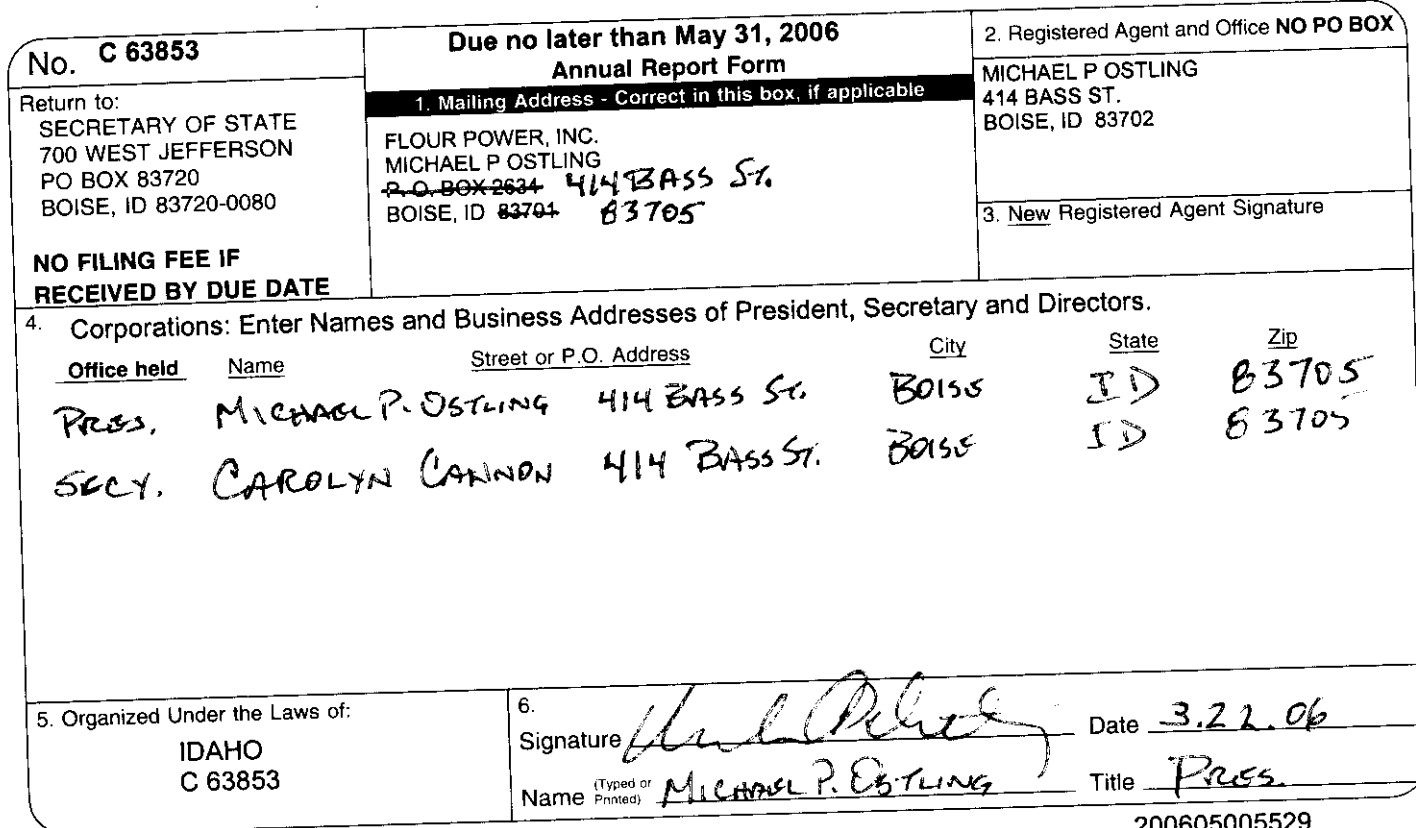 No. C 63853
Return to:
SECRETARY OF STATE
700 WEST JEFFERSON
PO BOX 83720
BOISE, ID 83720-0080
NO FILING FEE IF
RECEIVED BY DUE DATE
Due no later than May 31, 2006
Annual Report Form
1. Mailing Address - Correct in this box, if applicable
FLOUR POWER, INC.
MICHAEL P OSTLING
P. O. BOX 2634 414 BASS ST.
BOISE, ID 83701 83705
2. Registered Agent and Office NO PO BOX
MICHAEL P OSTLING
414 BASS ST.
BOISE, ID 83702
3. New Registered Agent Signature
4. Corporations: Enter Names and Business Addresses of President, Secretary and Directors.
Office held Name Street or P.O. Address City State Zip
PRES. MICHAEL P. OSTLING 414 BASS ST. BOISE ID 83705
SECY. CAROLYN CANNON 414 BASS ST. BOISE ID 83705
5. Organized Under the Laws of:
IDAHO
C 63853
6.
Signature Date 3.22.06
Name (Typed or Printed) MICHAEL P. OSTLING Title PRES.
200605005529